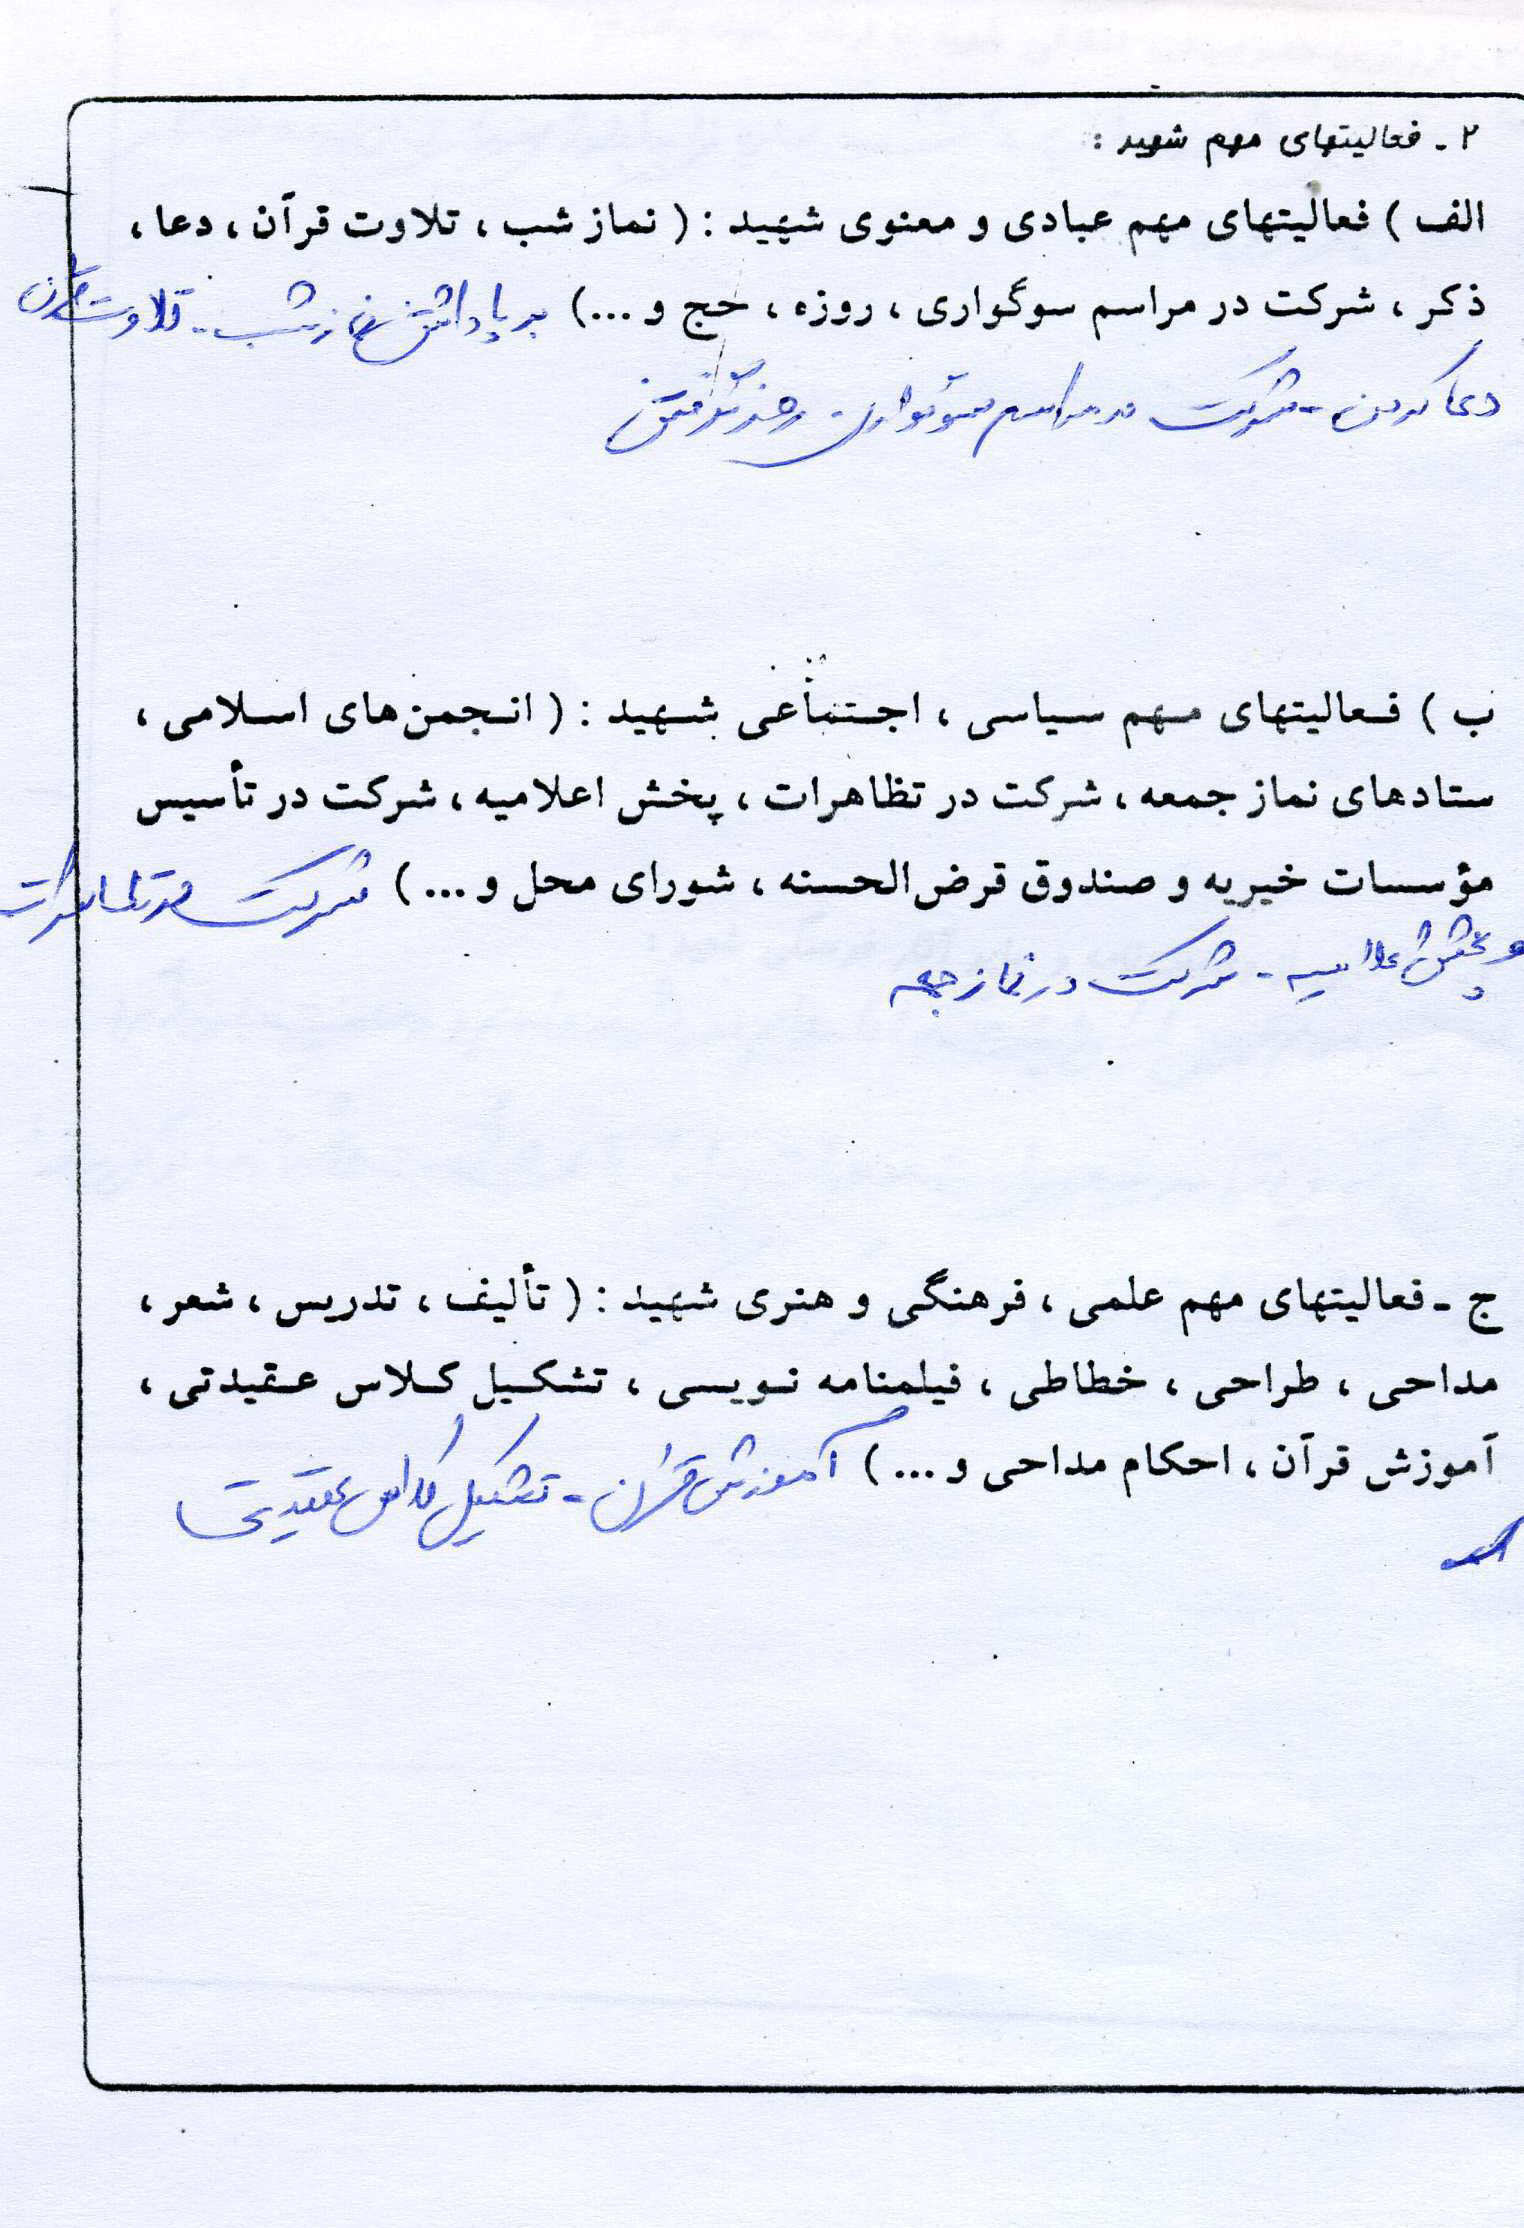 ۲ ـ فعالیتهای مهم شهید :
الف ) فعالیتهای مهم عبادی و معنوی شهید : ( نماز شب ، تلاوت قرآن ، دعا ،
ذکر ، شرکت در مراسم سوگواری ، روزه ، حج و ...) برپاداشتن نماز شب - تلاوت قرآن
دعا کردن - شرکت در مراسم سوگواری روزه گرفتن
ب ) فعالیتهای مهم سیاسی ، اجتماعی شهید : ( انجمن‌های اسلامی ،
ستادهای نماز جمعه ، شرکت در تظاهرات ، پخش اعلامیه ، شرکت در تأسیس
مؤسسات خیریه و صندوق قرض‌الحسنه ، شورای محل و ... ) شرکت در تظاهرات
و پخش اعلامیه - شرکت در نماز جمعه
ج ـ فعالیتهای مهم علمی ، فرهنگی و هنری شهید : ( تألیف ، تدریس ، شعر ،
مداحی ، طراحی ، خطاطی ، فیلمنامه نویسی ، تشکیل کلاس عقیدتی ،
آموزش قرآن ، احکام مداحی و ... ) آموزش قرآن - تشکیل کلاس عقیدتی